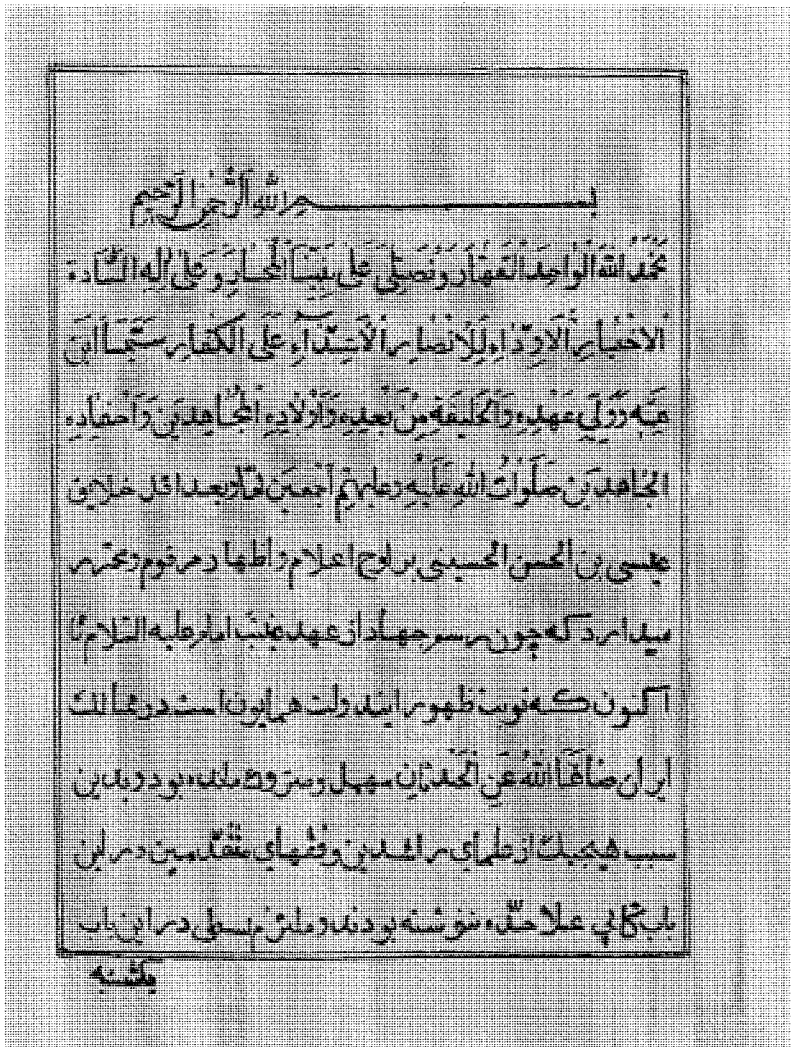 بسم الله الرحمن الرحیم
نحمد الله الواحد القهار و نصلی علی نبینا المختار و علی اله السادة
الاخیار الاوداء للانصار الاشداء علی الکفار سیما ابن
عمه و ولی عهده و الخلیفة من بعده و اولاده المجاهدین و احفاده
الجاهدین صلوات الله علیه و علیهم اجمعین اما بعد اقل خلایق
عیسی بن الحسن الحسینی بر لوح اعلام و اظهار مرقوم و محرر
میدارد که چون رسم جهاد از عهد غیبت امام علیه السلام تا
اکنون که نوبت ظهور ایندولت همایون است در ممالک
ایران صانها الله عن الحدثان مهمل و متروک مانده بود و بدین
سبب هیچیک از علمای راشدین و فقهای متقدمین در این
باب کتابی علاحده ننوشته بودند و ملتزم بسطی در این باب